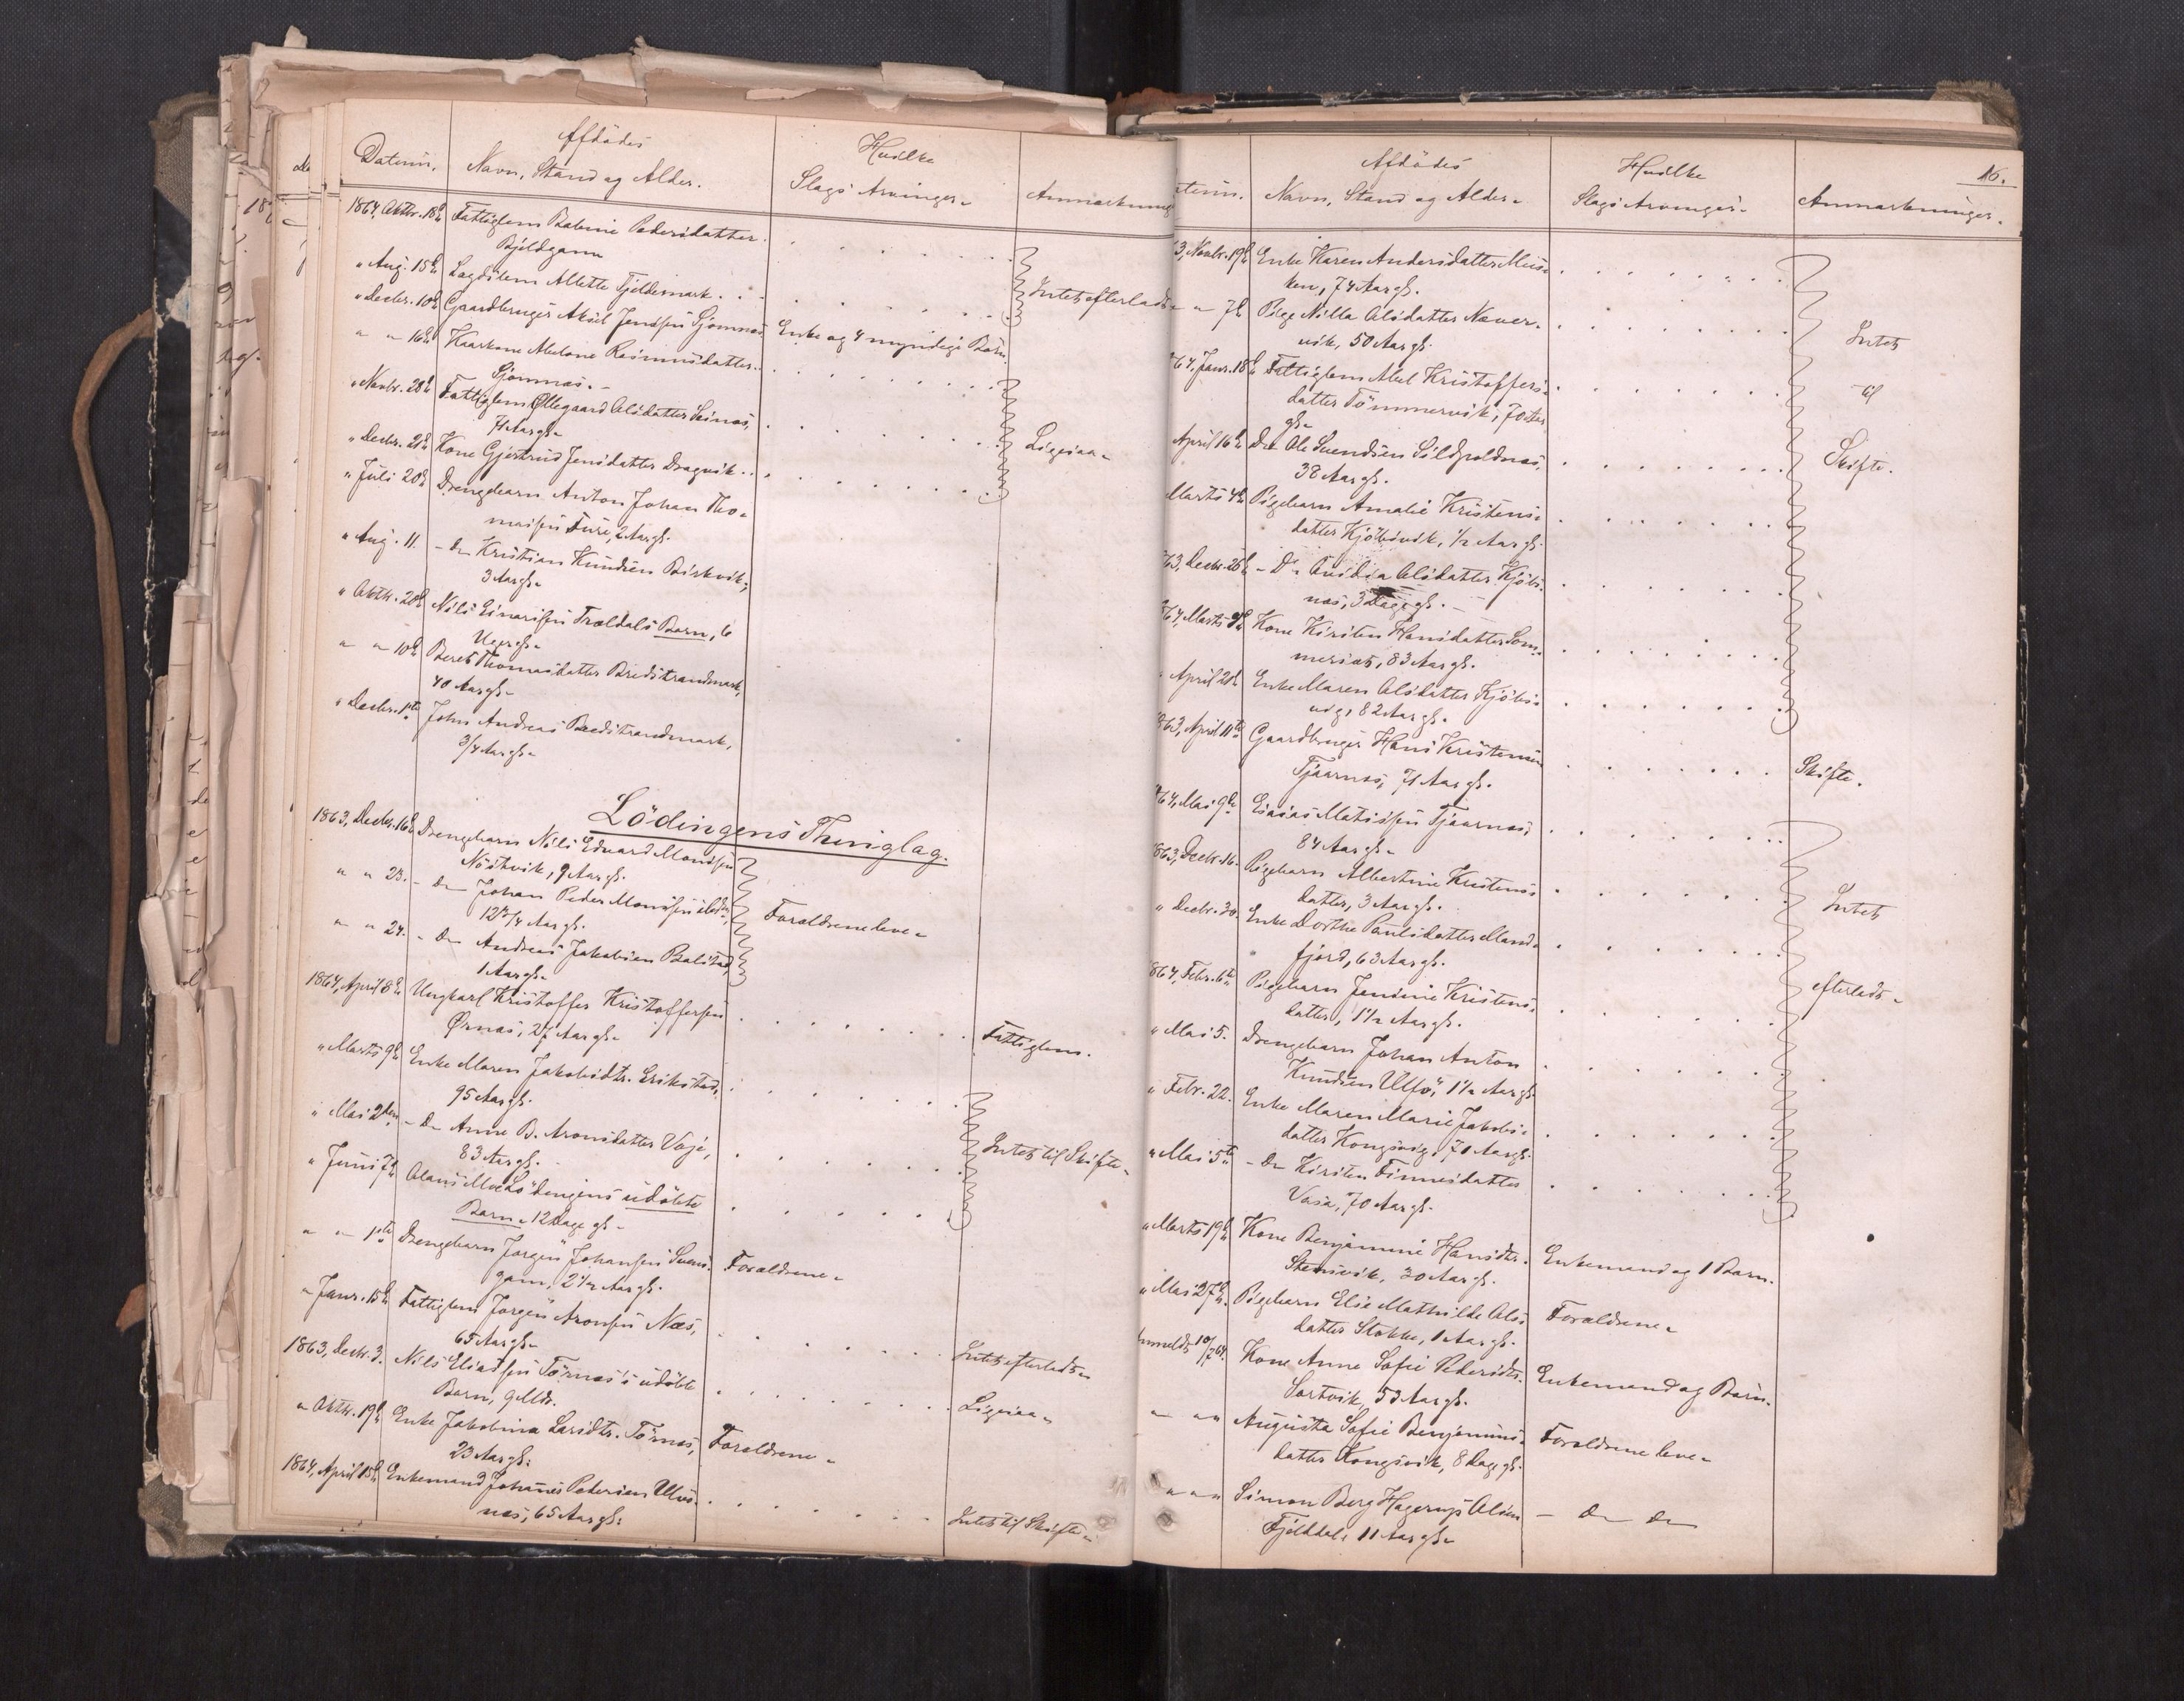 Afdödes
Hvilke
Datum. Navn, Stand og Alder. Slags Arvinger. Anmærkning
1864, Oktbr. 18de Fattiglem Pedersdatter
" Aug. 15de Lagdslem Alette Fjeldsmark Intet efterladt
" Decbr. 10de Gaardbruger Aksel Jenssen Sjomnæs Enke og 4 myndige Børn.
" " 16de Kaarkone Rasmusdatter
Sjomnæs.
" Novbr. 28de Fattiglem Øllegaard Olsdatter
71 Aar gl.
" Decbr. 21de Kone Gjertrud Jensdatter Dragvik Ligesaa
" Juli 20de Drengebarn Anton Johan Tho-
massen 2 Aar gl.
" Aug. 11. - Do Kristian Knudsen Birkvik,
3 Aar gl.
" Oktbr. 28de Nils Einarssen Trældals Barn, 6
Uger gl.
" " 10de Beret Thomasdatter Bredstrandmark,
40 Aar gl.
" Decbr. 1ste John Andreas Bredstrandmark,
3/4 Aar gl.
Lödingens Thinglag.
1863, Decbr. 16de Drengebarn Nils Eduard Monssen
Nöstvik, 9 Aar gl.
" " 23. - Do Johan Peder Monssen
12 3/4 Aar gl. Forældrene leve
" " 24. - Do Andreas Jakobsen
1 Aar gl.
1864, April 8de Ungkarl Kristoffer Kristoffersen
Ørnæs, 27 Aar gl. Fattiglem.
" Marts 9de Enke Maren Jakobsdtr. Erikstad,
95 Aar gl.
" Mai 2den - Do Anne B. Aronsdatter Vaje,
83 Aar gl. Intet til Skifte
" Juni 7de Olaus Lödingens udöbte
Barn 12 Dage gl.
" " 1ste Drengebarn Jörgen Johansen
2 1/2 Aar gl. Forældrene
" Janr. 15de Fattiglem Jörgen Aronsen Næs,
65 Aar gl. Intet efterladt
1863, Decbr. 3. Nils Eliassen Törnæs's udöbte
Barn, 9 Mdr. Ligesaa
" Oktbr. 19de Enke Jakobina Larsdtr. Törnæs, Forældrene
23 Aar gl.
1864, April 15de Enkemand Johannes Pedersen
næs, 65 Aar gl. Intet til Skifte
16.
Afdödes
Hvilke
Navn, Stand og Alder Slags Arvinger Anmærkninger.
3, Novbr. 19de Enke Karen Andersdatter
ken, 74 Aar gl.
" " 7de Pige Nilla Olsdatter Næver-
vik, 50 Aar gl. Intet
64, Janr. 18de Fattiglem Kristoffers-
datter Tömmervik, 70 Aar til
gl.
April 16de Do Ole Svendsen
38 Aar gl. Skifte.
Marts 4de Pigebarn Amalie Kristens-
datter Kjöbsvik, 1/2 Aar gl.
63, Decbr. 26de - Do Ovidia Olsdatter Kjöbs-
næs, 3 Dage gl.
64, Marts Kone Kirsten Hansdatter Som-
merset, 83 Aar gl.
" April 20de Enke Maren Olsdatter Kjöbs-
vig, 82 Aar gl.
863, April 11te Gaardbruger Hans Kristensen Skifte.
Tjaarnæs, 71 Aar gl.
64, Mai 9de Esaias Matissen Tjaarnæs,
84 Aar gl.
863, Decbr. 16. Pigebarn Albertine Kristens-
datter, 3 Aar gl. Intet
" Decbr. 30. Enke Dorthe Paulsdatter Mand-
fjord, 63 Aar gl.
864, Febr. 6te Pigebarn Jensine Kristens- efterladt
datter, 1 1/2 Aar gl.
" Mai 5. Drengebarn Johan Anton
Knudsen Ulfö, 1 1/2 Aar gl.
" Febr. 22. Enke Maren Marie Jakobs-
datter Kongsvig, 70 Aar gl.
" Mai 5te - Do Kirsten Finnesdatter
70 Aar gl.
" Marts 19de Kone Benjamine Hansdtr.
Stensvik, 30 Aar gl. Enkemand og 1 Barn.
" Mai 27de Pigebarn Else Mathilde Ols-
datter Stokke, 1 Aar gl. Forældrene
Anmeldt 10/7 64. Kone Anne Sofie Pedersdtr.
Sortvik, 53 Aar gl. Enkemand og Börn.
" " " Augusta Sofie Benjamins-
datter Kongsvik, 8 Dage gl. Forældrene leve
" " " Simon Berg Hagerup Olsen - Do Do
Fjelddal, 11 Aar gl.